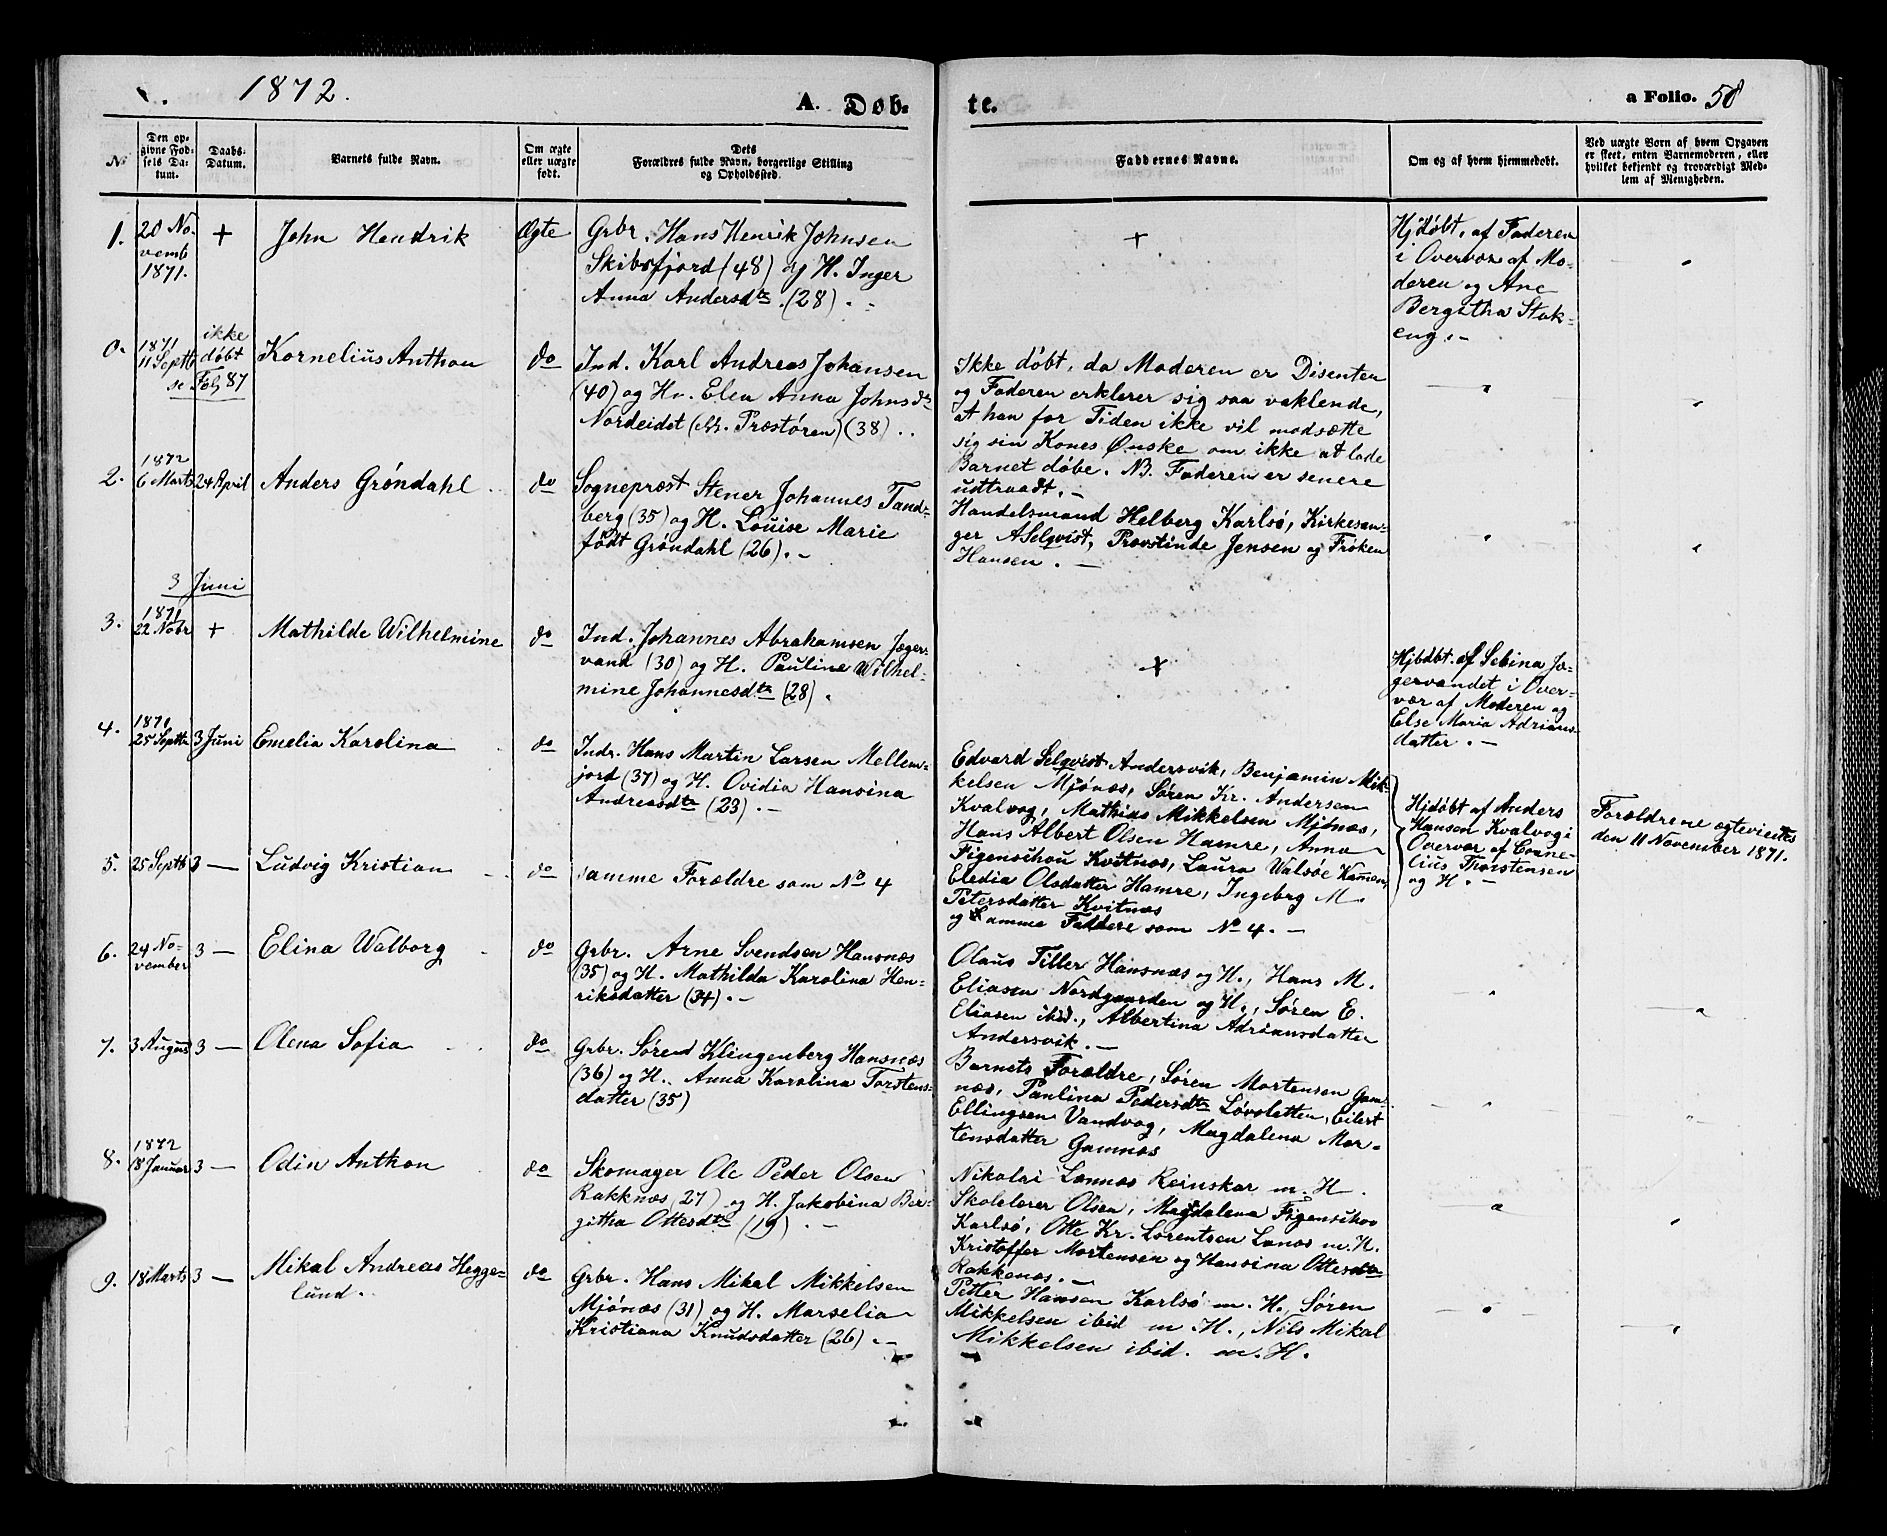 1872.
A. Døb-
te.
a Folio. 58
No
Den op-
givne Fød-
sels Da-
tum.
Daabs-
Datum.
Barnets fulde Navn.
Om ægte
eller uægte
født.
Dets
Forældres fulde Navn, borgerlige Stilling
og Opholdssted.
Faddernes Navne.
Om og af hvem hjemmedøbt.
Ved uægte Børn af hvem Opgaven
er skeet, enten Barnemoderen, eller
hvilket bekjendt og troværdigt Med-
lem af Menigheden.
1.
20 No-
vemb
1871.
+
John Hendrik
Ægte
Grbr. Hans Henrik Johnsen
Skibsfjord (48) og H. Inger
Anna Andersdtr. (28) . -
+
Hjdøbt. af Faderen
i Overvær af Mo-
deren og Ane
Bergitha Stak-
eng. -
0.
1871
11 Septb
ikke
døbt
se Folj 87
Kornelius Anthon
do
Ind. Karl Andreas Johansen
(40) og Hu. Elen Anna Johnsdtr
Nordeidet (Præstøren) (38) . .
Ikke døbt, da Moderen er Disenter
og Faderen erklerer sig saa vaklende,
at han for Tiden ikke vil modsætte
sig sin Kones Ønske om ikke at lade
Barnet døbe. NB. Faderen er senere
udtraadt. -
2.
1872
6 Marts
24 April
Anders Grøndahl
do
Sognepræst Stener Johannes Tand-
berg (35) og H. Louise Marie
født Grøndahl (26). -
Handelsmand Helberg Karlsø, Kirkesan-
ger A Selqvist, Provstinde Jensen og Frøken
Hansen. -
3 Juni
3.
1871
22 Nobr
+
Mathilde Wilhelmine
do
Ind. Johannes Abrahamsen Jæger-
vand (30) og H. Pauline Wilhel-
mine Johannesdtr (28) .
+
Hjbdbt. af Sebina Jæ-
gervandet i Over-
vær af Moderen og
Else Maria Adrians-
datter. -
4.
1871
25 Septbr
3 Juni
Emelia Karolina
do
Indr. Hans Martin Larsen Mellem-
jord (37) og H. Ovidia Hansina
Andreasdtr (23). -
Edvard Selqvist Andersvik, Benjamin Mik-
kelsen Mjönæs, Søren Kr. Andersen
Kvalvog, Mathias Mikkelsen Mjönæs,
Hans Albert Olsen Hamre, Anna
Figenschou Kvitnæs, Laura Walsöe Kamen,
Eledia Olsdatter Hamre, Ingeborg M.
Petersdatter Kvitnæs
Hjdøbt af Anders
Hansen Kvalvog i
Overvær af Corne-
lius Thorstensen
og H. -
Forældrene ægteviedes
den 11 November 1871.
5.
25 Septb
3 —
Ludvig Kristian
do
samme Forældre som No 4
og Samme Faddere som No 4. -
6.
24 No-
vember
3 —
Elina Walborg
do
Grbr. Arne Svendsen Hansnæs
(35) og H. Mathilda Karolina Hen-
riksdatter (34) . -
Olaus Tiller Hansnæs og H., Hans M.
Eliasen Nordgaarden og H., Søren E.
Eliasen ibid., Albertina Adriansdatter
Andersvik. -
7.
3 August
3 —
Olena Sofia
do
Grbr. Søren Klingenberg Hansnæs
(36) og H. Anna Karolina Torstens-
datter (35)
Barnets Forældre, Søren Mortensen Gam-
næs, Paulina Pedersdtr Løvsletten, Eilert
Ellingsen Vandvog, Magdalena Mor-
tensdatter Gamnæs
8.
1872
18 Januar
3 —
Odin Anthon
do
Skomager Ole Peder Olsen
Rakknæs 27) og H. Jakobina Ber-
githa Ottesdtr (19) . -
Nikolai Lannæs Reinskar m. H.
Skolelærer Olsen, Magdalena Figenschou
Karlsø, Otte Kr. Lorentsen Lanæs m. H.
Kristoffer Mortensen og Hansina Ottesdtr
Rakkenæs. -
9.
18 Marts
3 —
Mikal Andreas Hegge-
lund.
do
Grbr. Hans Mikal Mikkelsen
Mjönæs (31) og H. Marselia
Kristiana Knudsdatter (26) . -
Petter Hansen Karlsø m. H., Søren
Mikkelsen ibid m. H., Nils Mikal
Mikkelsen ibid. m. H.